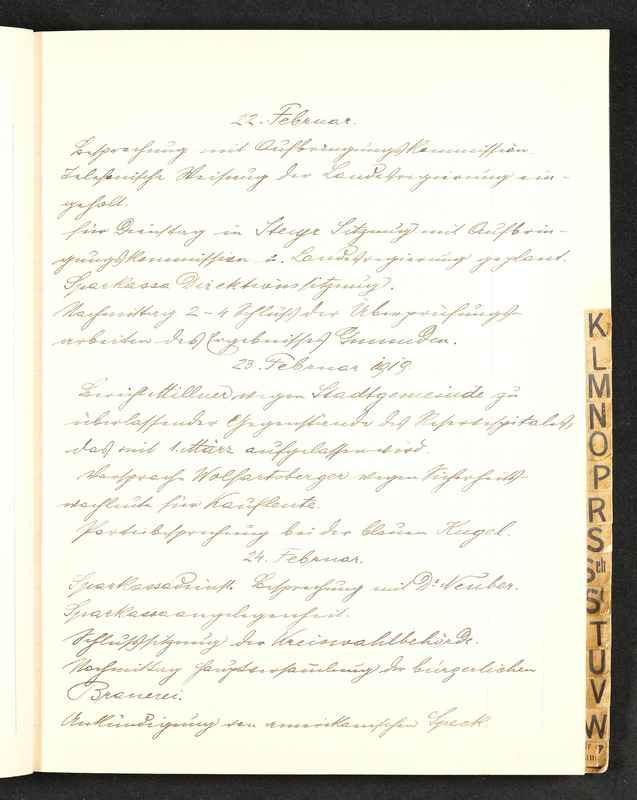 22. Februar.
Besprechung mit Aufbringungskommission.
Telefonische Weisung der Landesregierung ein-
geholt.
Für Dienstag in Steyr Sitzung mit Aufbrin-
gungskommission u. Landesregierung geplant.
Sparkassa Direktionssitzung.
Nachmittag 2-4 Schluß der Überprüfungs-
arbeiten des Ergebnisses Gmunden.
23. Februar 1919.
Bericht Millner wegen Stadtgemeinde zu
überlassender Gegenstände des Reservespitales,
das mit 1. März aufgelassen wird.
Vorsprache Wolfartsberger wegen Sicherheits-
wachleute für Kaufleute.
Parteibesprechung bei der blauen Kugel.
24. Februar.
Sparkassadienst. Besprechung mit Dr Neuber.
Sparkassaangelegenheit.
Schlußsitzung der Kreiswahlbehörde.
Nachmittag Hauptversammlung der bürgerlichen
Brauerei.
Ankündigung von amerikanischen Speck.
K
L
M
N
O
P
R
S
Sch
St
T
U
V
W